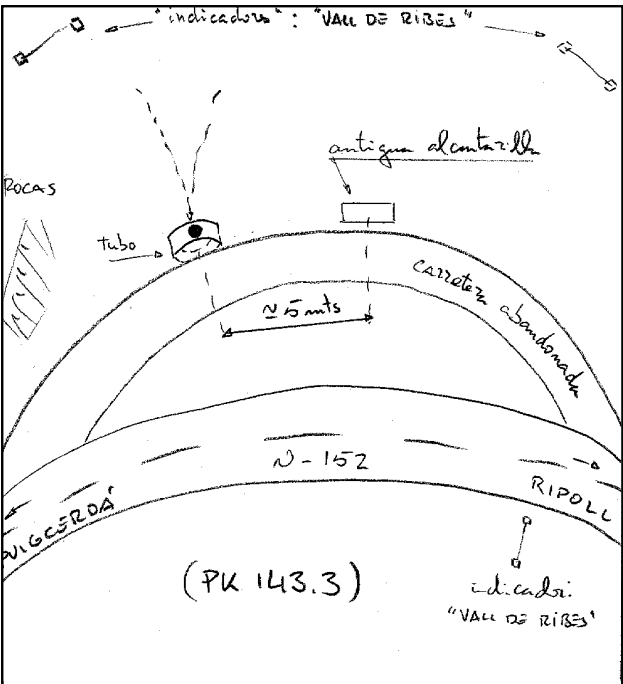 "indicadors": "VALL DE RIBES"
antigua alcantarilla
ROCAS
tubo
carretera abandonada
≃ 5 mts
N-152
PUIGCERDÀ
RIPOLL
(PK 143.3)
indicador:
"VALL DE RIBES"